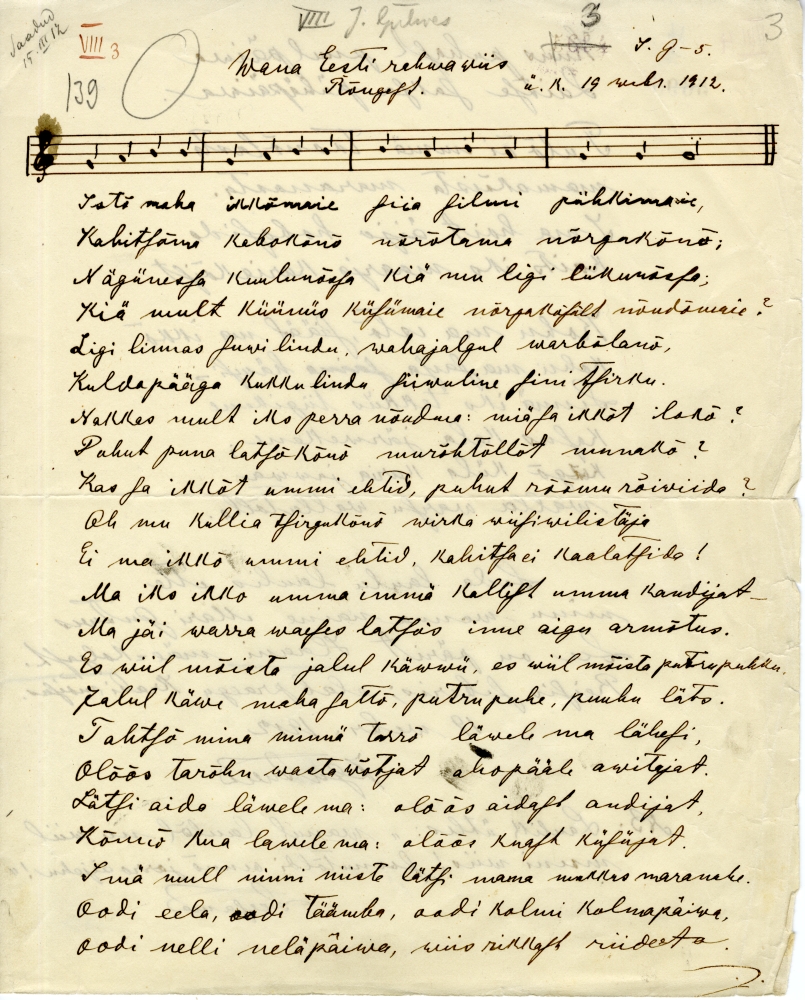 Saadud
15. III 12
VIII 3
VIII J. Gutves
3
3
139
Wana Eesti rahwawiis
Rõugest.
ü. k. 19 webr. 1912.
Istõ maha ikkõmaie siia silmi pühkimaie,
Kahitsõma kebokõnõ nõrõtama nõrgakõnõ;
Nägünessa kuulunõssa kiä mu ligi lükunõssa;
Kiä mult küünüs küsümaie nõrgakõsilt nõudõmaie?
Ligi linnas suwilindu, wahajalgul warbõlanõ,
Kuldapääga kukkulindu siiwuline sinitsirku.
Nakkas mult iks perra nõudma: miä sa ikkõt ilokõ?
Puhut puna latsõkõnõ murõhtõllõt munakõ?
Kas sa ikkõt ummi ehtid, puhut rõõmu rõiwiida?
Oh mu kullia tsirgukõnõ wirka wiisiwilistäja
Ei ma ikkõ ummi ehtid, kahitsa ei kaalatsida!
Ma iks ikko umma immä kallist umma kandijat –
Ma jäi warra waeses latsõs inne aigu armõtus.
Es wiil mõista jalul käwwü, es wiil mõista putru puhku.
Jalul käwe maha sattõ, putru puhe, puuhu läts.
Tahtsõ mina minnä tarrõ läwele ma lähesi,
Olõõs tarõhn wasta wõtjat ahopääle awitajat.
Lätsi aida läwele ma: olõõs aidast andijat,
Kõnnõ kua lawele ma: olõõs kuast küsüjat.
Imä mull ninni niiste lätsi mama mukkas maranahe.
Oodi eela, oodi täämba, oodi kolmi kolmapäiwa,
oodi nelli neläpäiwa, wiis rikkast riideeta.